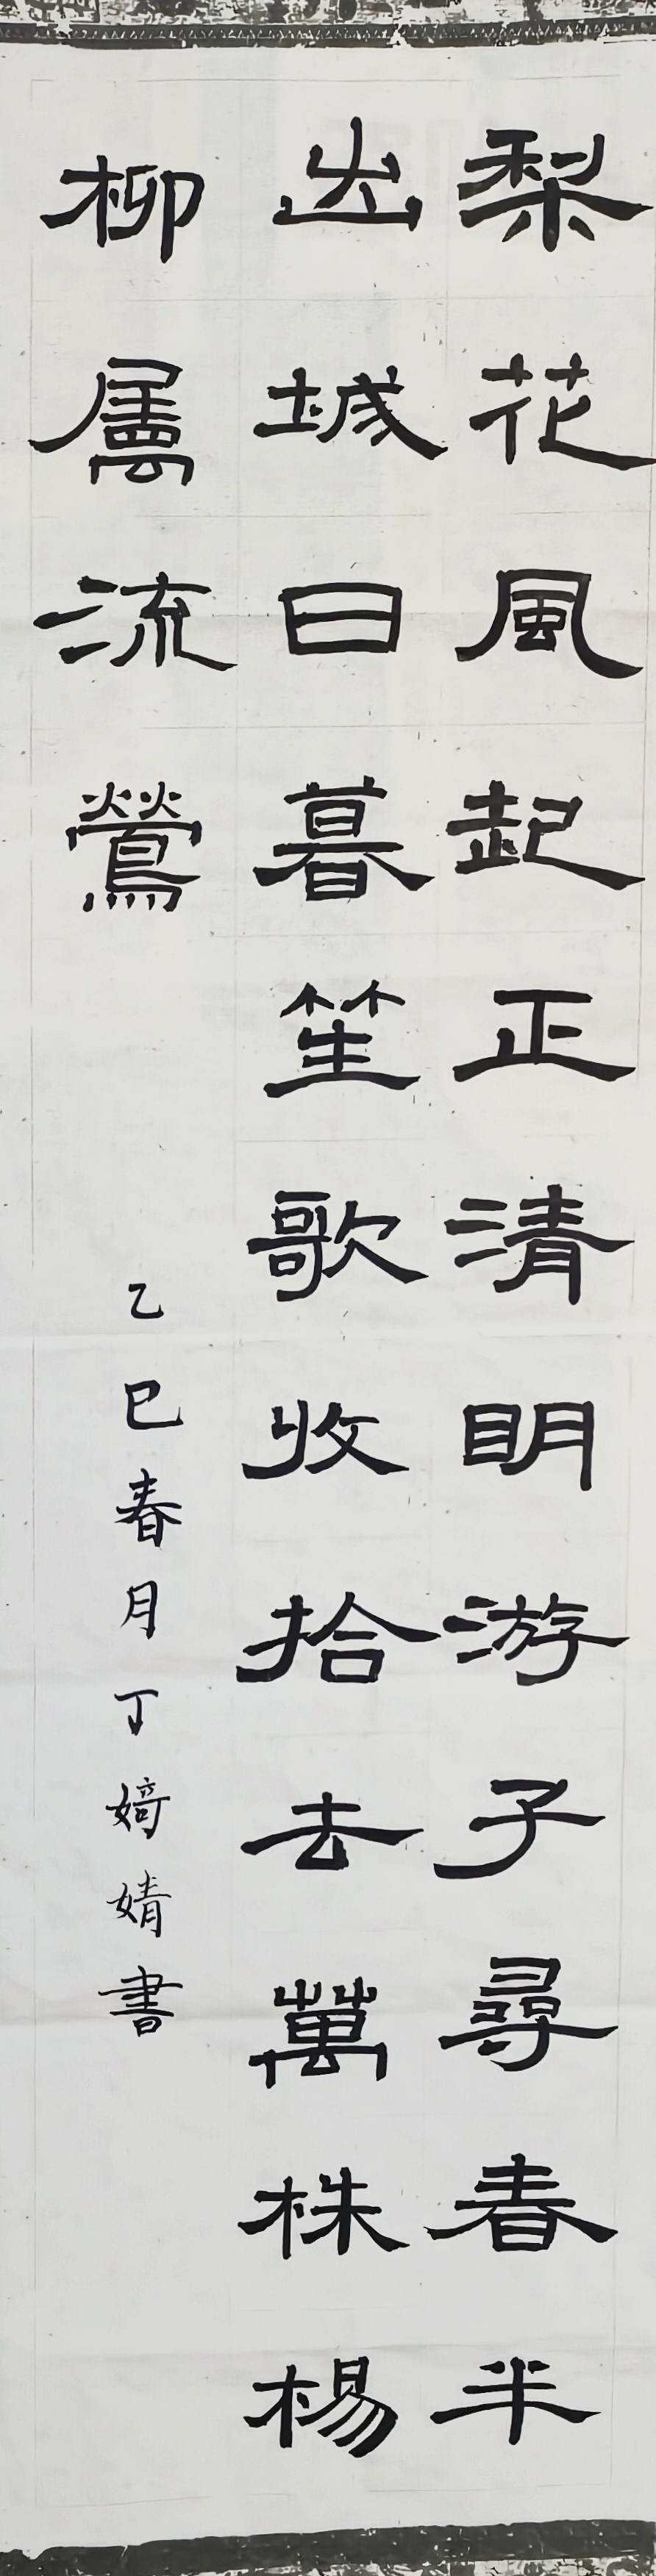 梨花風起正清明游子尋春半
出城日暮笙歌收拾去萬株楊
柳屬流鶯
乙巳春月丁婍婧書